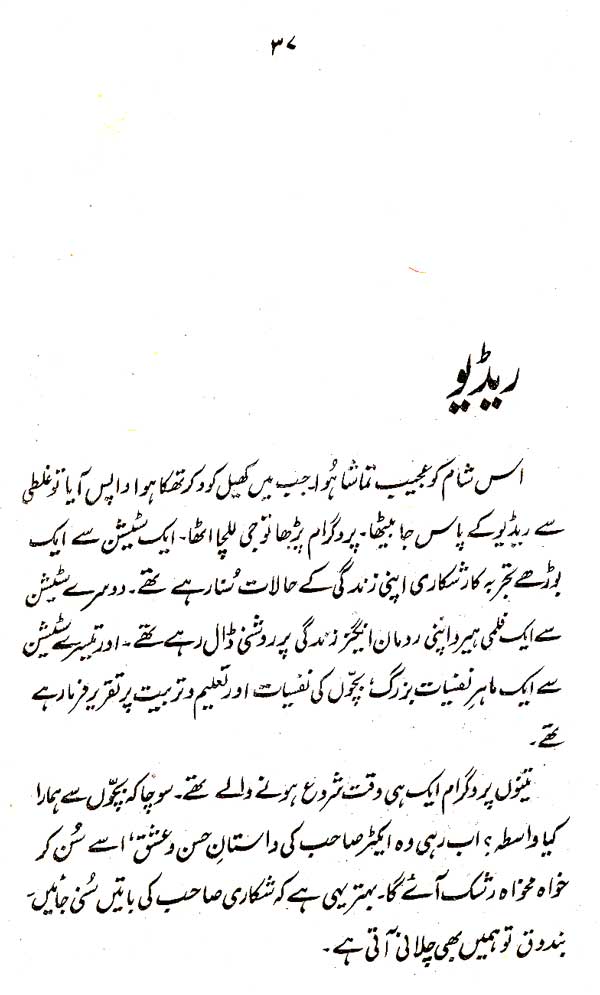 ۳۷
ریڈیو
اس شام کو عجیب تماشا ہُوا۔ جب میں کھیل کود کر تھکا ہوا واپس آیا تو غلطی
سے ریڈیو کے پاس جا بیٹھا۔ پروگرام پڑھا تو جی للچا اٹھا۔ ایک سٹیشن سے ایک
بوڑھے تجربہ کار شکاری اپنی زندگی کے حالات سُنا رہے تھے۔ دوسرے سٹیشن
سے ایک فلمی ہیرو اپنی رومان انگیز زندگی پر روشنی ڈال رہے تھے۔ اور تیسرے سٹیشن
سے ایک ماہرِ نفسیات بزرگ، بچّوں کی نفسیات اور تعلیم و تربیت پر تقریر فرما رہے
تھے۔
تینوں پروگرام ایک ہی وقت شروع ہونے والے تھے۔ سوچا کہ بچّوں سے ہمارا
کیا واسطہ؟ اب رہی وہ ایکٹر صاحب کی داستانِ حسن و عشق، اسے سُن کر
خواہ مخواہ رشک آئے گا۔ بہتر یہی ہے کہ شکاری صاحب کی باتیں سُنی جائیں۔
بندوق تو ہمیں بھی چلانی آتی ہے۔